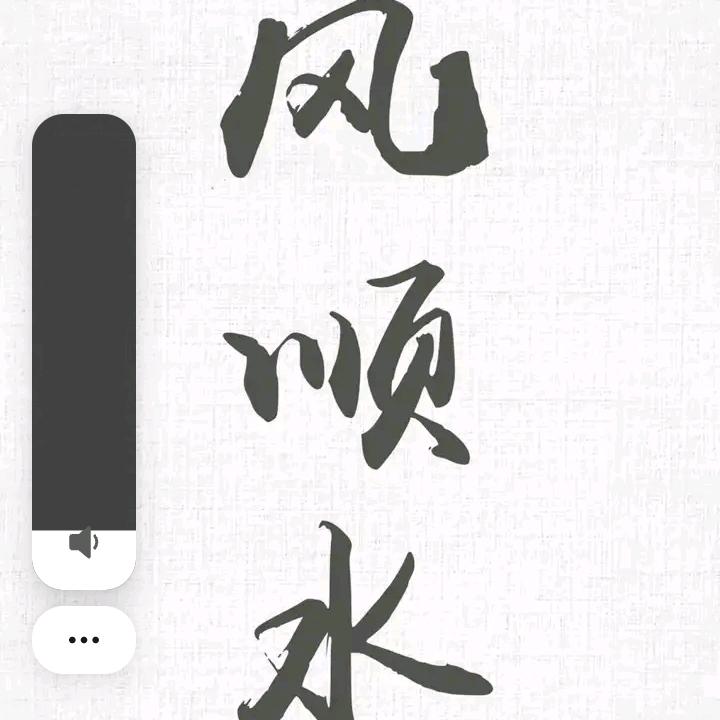 风
顺
水